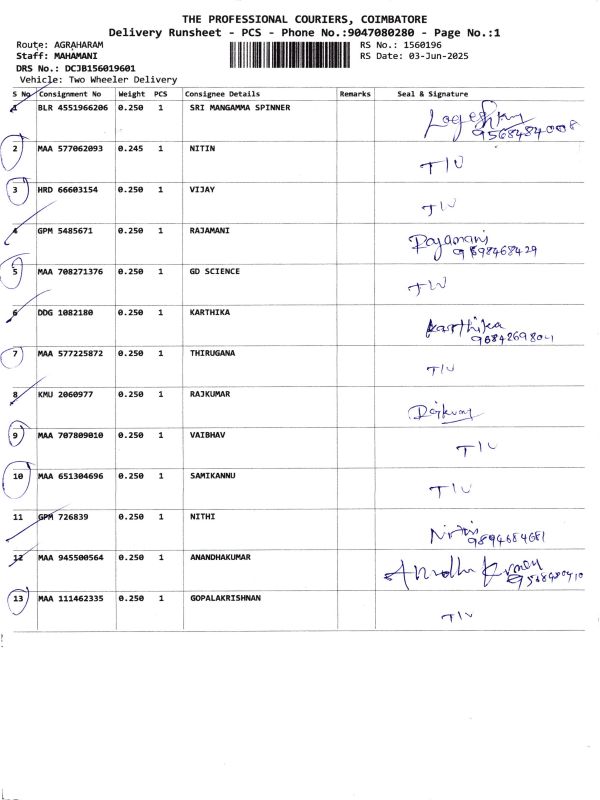 THE PROFESSIONAL COURIERS, COIMBATORE
Delivery Runsheet - PCS - Phone No.:9047080280 - Page No.:1
Route: AGRAHARAM RS No.: 1560196
Staff: MAHAMANI RS Date: 03-Jun-2025
DRS No.: DCJB156019601
Vehicle: Two Wheeler Delivery
S No Consignment No Weight PCS Consignee Details Remarks Seal & Signature
1 BLR 4551966206 0.250 1 SRI MANGAMMA SPINNER
9568484008
2 MAA 577062093 0.245 1 NITIN T/U
3 HRD 66603154 0.250 1 VIJAY T/U
4 GPM 5485671 0.250 1 RAJAMANI Rajamani
5 MAA 708271376 0.250 1 GD SCIENCE T/U
6 DDG 1082180 0.250 1 KARTHIKA Karthika
7 MAA 577225872 0.250 1 THIRUGANA T/U
8 KMU 2060977 0.250 1 RAJKUMAR
9 MAA 707809010 0.250 1 VAIBHAV T/U
10 MAA 651304696 0.250 1 SAMIKANNU T/U
11 GPM 726839 0.250 1 NITHI
9894684681
12 MAA 945500564 0.250 1 ANANDHAKUMAR
13 MAA 111462335 0.250 1 GOPALAKRISHNAN T/U